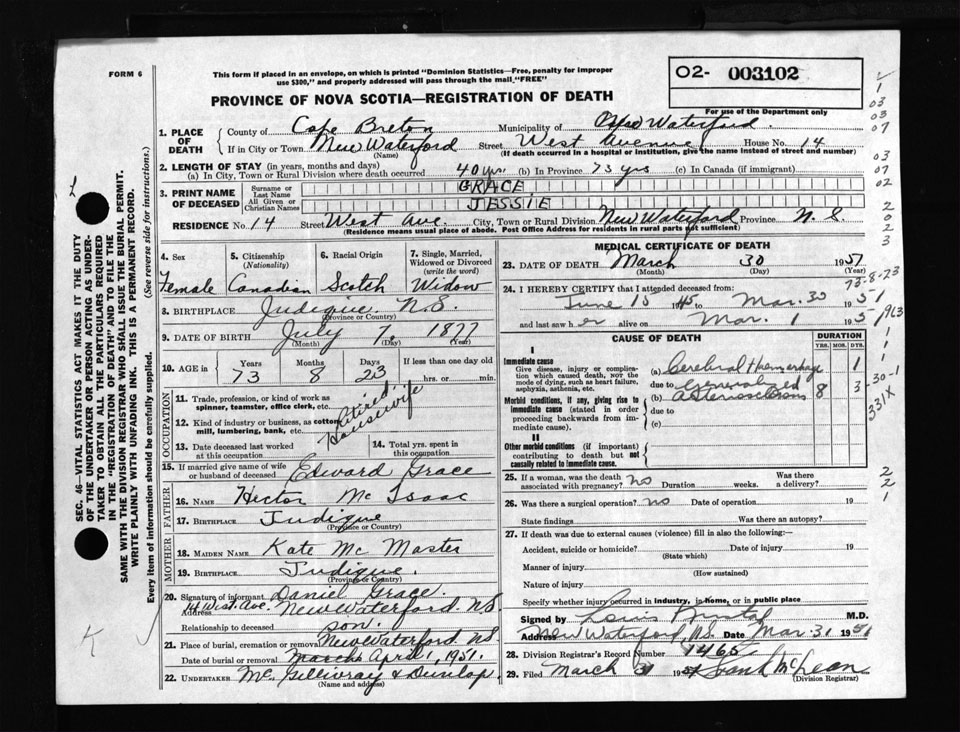 FORM 6
This form if placed in an envelope, on which is printed "Dominion Statistics—Free, penalty for improper
use $300," and properly addressed will pass through the mail "FREE"
02- 003102
For use of the Department only
PROVINCE OF NOVA SCOTIA—REGISTRATION OF DEATH
1. PLACE OF DEATH
County of Cape Breton Municipality of New Waterford
If in City or Town New Waterford Street West Avenue House No. 14
(Name) (If death occurred in a hospital or institution, give the name instead of street and number)
2. LENGTH OF STAY (in years, months and days)
(a) In City, Town or Rural Division where death occurred 40 yrs. (b) In Province 73 yrs (c) In Canada (if immigrant)
3. PRINT NAME OF DECEASED
Surname or Last Name GRACE
All Given or Christian Names JESSIE
RESIDENCE No. 14 Street West Ave. City, Town or Rural Division New Waterford Province N. S.
(Residence means usual place of abode. Post Office Address for residents in rural parts not sufficient)
4. Sex
Female
5. Citizenship
(Nationality)
Canadian
6. Racial Origin
Scotch
7. Single, Married, Widowed or Divorced
(write the word)
Widow
8. BIRTHPLACE Judique N.S.
(Province or Country)
9. DATE OF BIRTH July 7 1877
(Month) (Day) (Year)
10. AGE in
Years Months Days If less than one day old
73 8 23 hrs. or min.
OCCUPATION
11. Trade, profession, or kind of work as
spinner, teamster, office clerk, etc.
12. Kind of industry or business, as cotton
mill, lumbering, bank, etc.
Retired
Housewife
13. Date deceased last worked
at this occupation
14. Total yrs. spent in
this occupation
15. If married give name of wife
or husband of deceased Edward Grace
FATHER
16. NAME Hector McIsaac
17. BIRTHPLACE Judique
(Province or Country)
MOTHER
18. MAIDEN NAME Kate McMaster
19. BIRTHPLACE Judique.
(Province or Country)
20. Signature of informant Daniel Grace.
Address 14 West Ave. New Waterford NS
Relationship to deceased son.
21. Place of burial, cremation or removal New Waterford NS
Date of burial or removal March April 1, 1951.
22. UNDERTAKER McGillivray & Dunlop.
(Name and address)
MEDICAL CERTIFICATE OF DEATH
23. DATE OF DEATH March 30 1951
(Month) (Day) (Year)
24. I HEREBY CERTIFY that I attended deceased from:
June 15 1945 to Mar. 30 1951
and last saw her alive on Mar. 1 1951
CAUSE OF DEATH
DURATION
YRS. MOS. DYS.
I
Immediate cause
Give disease, injury or complication which caused death, not the mode of dying, such as heart failure, asphyxia, asthenia, etc.
(a) Cerebral Haemorrhage 1
due to
Morbid conditions, if any, giving rise to immediate cause (stated in order proceeding backwards from immediate cause)
(b) Generalized Arteriosclerosis 8 3
due to
(c)
II
Other morbid conditions (if important) contributing to death but not causally related to immediate cause.
25. If a woman, was the death
associated with pregnancy? no Duration weeks. Was there a delivery?
26. Was there a surgical operation? no Date of operation 19
State findings Was there an autopsy?
27. If death was due to external causes (violence) fill in also the following:
Accident, suicide or homicide? Date of injury 19
(State which)
Manner of injury
(How sustained)
Nature of injury
Specify whether injury occurred in industry, in home, or in public place
Signed by M.D.
Address New Waterford, N.S. Date Mar. 31 1951
28. Division Registrar's Record Number 1465
29. Filed March 31 1951 Frank McLean
(Division Registrar)
SEC. 46—VITAL STATISTICS ACT MAKES IT THE DUTY
OF THE UNDERTAKER OR PERSON ACTING AS UNDERTAKER
TO OBTAIN ALL THE PARTICULARS REQUIRED
IN THE "REGISTRATION OF DEATH" AND TO FILE THE
SAME WITH THE DIVISION REGISTRAR WHO SHALL ISSUE THE BURIAL PERMIT.
WRITE PLAINLY WITH UNFADING INK. THIS IS A PERMANENT RECORD.
Every item of information should be carefully supplied. (See reverse side for instructions.)
K
1
03
03
07
03
07
02
2
0
2
3
73-8-23
1963
1
1
1
30-1
331X
2
2
1